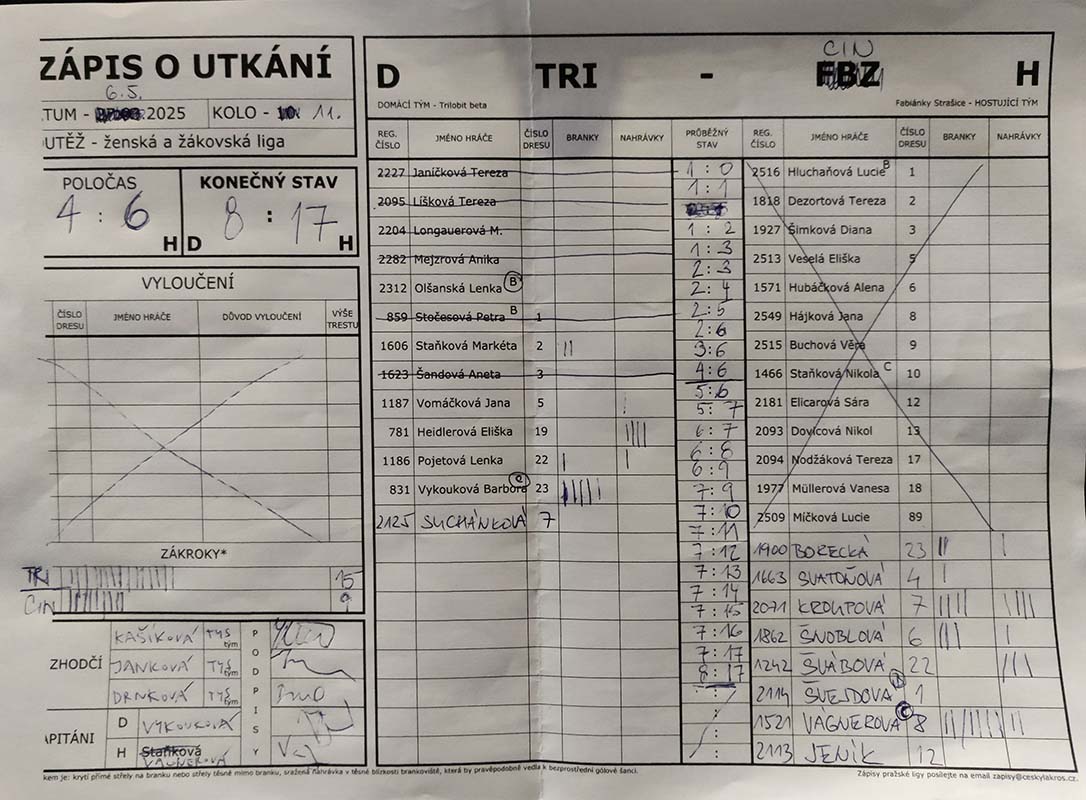 ZÁPIS O UTKÁNÍ
6.5.
TUM - 2025 KOLO - 11.
OUTĚŽ - ženská a žákovská liga
POLOČAS KONEČNÝ STAV
4 : 6 8 : 17
H D H
VYLOUČENÍ
ČÍSLO DRESU JMÉNO HRÁČE DŮVOD VYLOUČENÍ VÝŠE TRESTU
ZÁKROKY*
TRI 15
CIN 9
ZHODČÍ
KAŠÍKOVÁ TYS tým
JANKOVÁ TYS tým
DRNKOVÁ TYS tým
PODPISY
APITÁNI
D VYKOUKOVÁ
H Staňková
VÁGNEROVÁ
CIN
D TRI - FBZ H
DOMÁCÍ TÝM - Trilobit beta Fabiánky Strašice - HOSTUJÍCÍ TÝM
REG. ČÍSLO JMÉNO HRÁČE ČÍSLO DRESU BRANKY NAHRÁVKY PRŮBĚŽNÝ STAV REG. ČÍSLO JMÉNO HRÁČE ČÍSLO DRESU BRANKY NAHRÁVKY
2227 Janíčková Tereza
2095 Líšková Tereza
2204 Longauerová M.
2282 Mejzrová Anika
2312 Olšanská Lenka B
859 Stočesová Petra B 1
1606 Staňková Markéta 2 ||
1623 Šandová Aneta 3
1187 Vomáčková Jana 5 |
781 Heidlerová Eliška 19 ||||
1186 Pojetová Lenka 22 | |
831 Vykouková Barbora C 23 |||||
2125 SUCHÁNKOVÁ 7
1 : 0
1 : 1
1 : 2
1 : 3
2 : 3
2 : 4
2 : 5
2 : 6
3 : 6
4 : 6
5 : 6
5 : 7
6 : 7
6 : 8
6 : 9
7 : 9
7 : 10
7 : 11
7 : 12
7 : 13
7 : 14
7 : 15
7 : 16
7 : 17
8 : 17
:
:
:
2516 Hluchaňová Lucie B 1
1818 Dezortová Tereza 2
1927 Šimková Diana 3
2513 Veselá Eliška 5
1571 Hubáčková Alena 6
2549 Hájková Jana 8
2515 Buchová Věra 9
1466 Staňková Nikola C 10
2181 Elicarová Sára 12
2093 Dovicová Nikol 13
2094 Nodžáková Tereza 17
1977 Müllerová Vanesa 18
2509 Míčková Lucie 89
1900 BORECKÁ 23 || |
1663 SVATOŇOVÁ 4 |
2071 KROUPOVÁ 7 |||| ||||
1862 ŠNOBLOVÁ 6 ||| |
1242 ŠVÁBOVÁ 22 |||
2114 ŠVEJDOVA B 1
1521 VÁGNEROVÁ C 8
2113 JENÍK 12
kem je: krytí přímé střely na branku nebo střely těsně mimo branku, sražená nahrávka v těsné blízkosti brankoviště, která by pravěpodobně vedla k bezprostřední gólové šanci.
Zápisy pražské ligy posílejte na email zapisy@ceskylakros.cz.